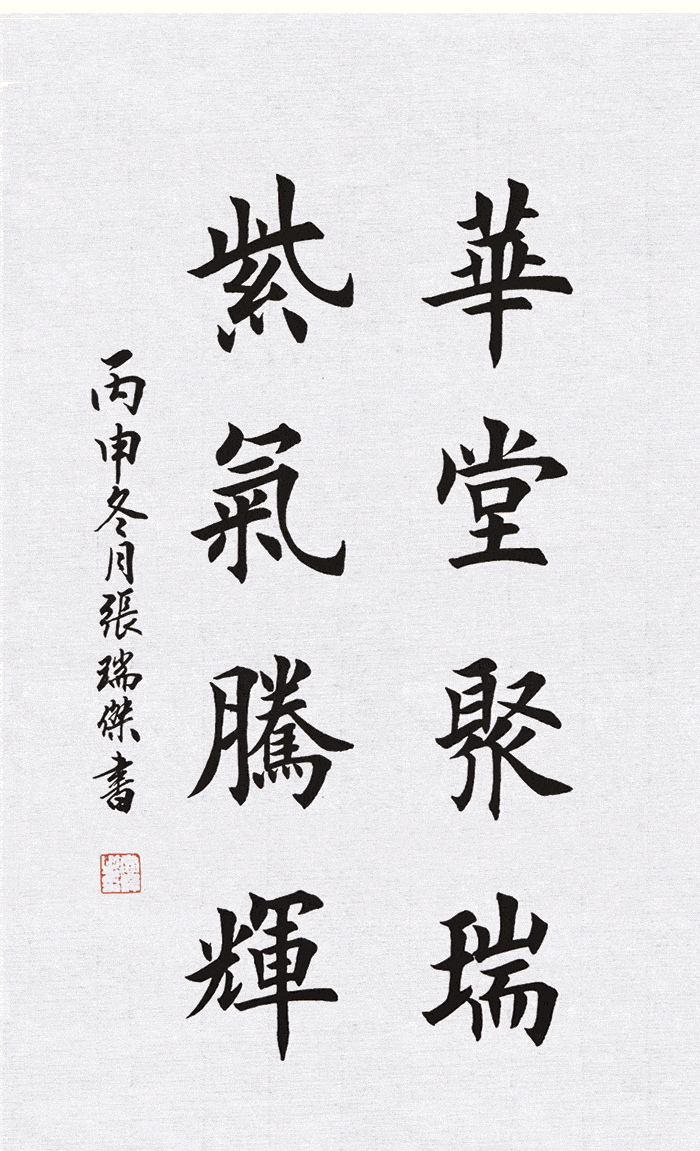 華堂聚瑞
紫氣騰輝
丙申冬月張瑞傑書